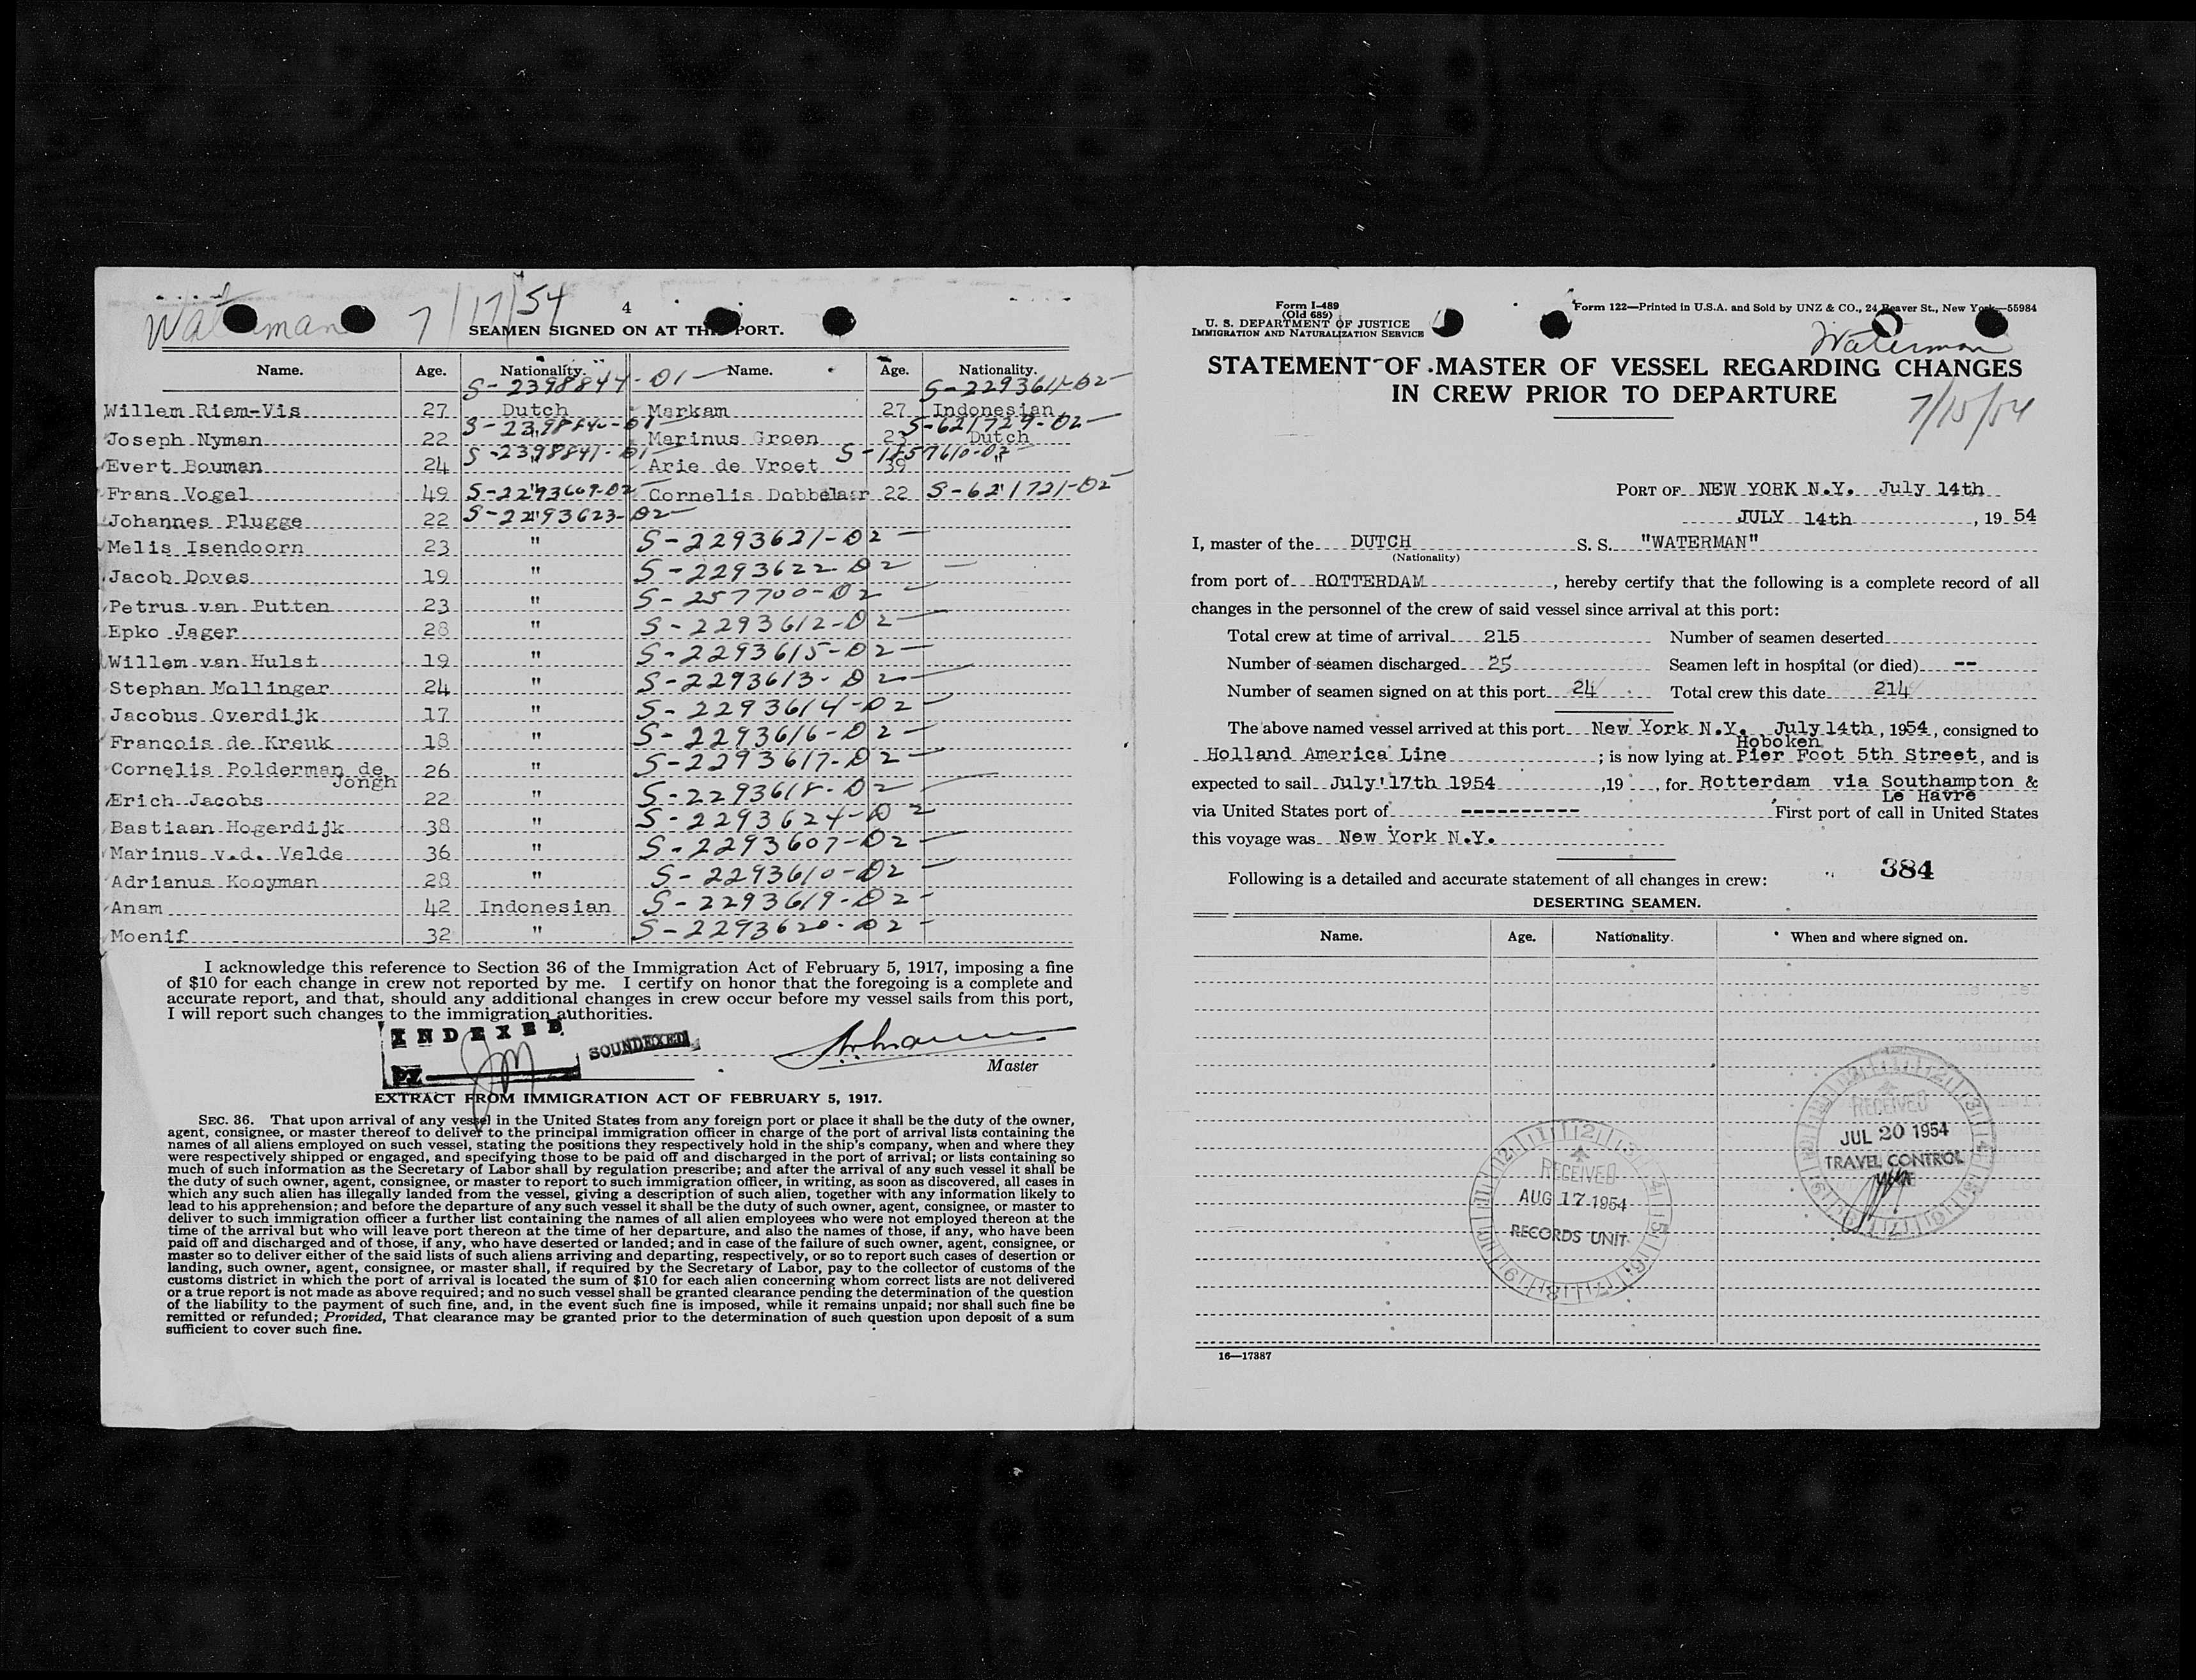 Waterman 7/17/54
4
SEAMEN SIGNED ON AT THIS PORT.
Name. Age. Nationality. Name. Age. Nationality.
S-2398844-D1 S-2293611-D2
Willem Riem-Vis 27 Dutch Markam 27 Indonesian
S-621729-D2
Joseph Nyman 22 " Marinus Groen 23 Dutch
S-2398841-D1
Evert Bouman 24 " Arie de Vroet 39 "
Frans Vogel 49 " S-2293609-D2 Cornelis Dobbelaar 22 " S-621721-D2
Johannes Plugge 22 " S-2293623-D2
Melis Isendoorn 23 " S-2293621-D2
Jacob Doves 19 " S-2293622-D2
Petrus van Putten 23 " S-257700-D2
Epko Jager 28 " S-2293612-D2
Willem van Hulst 19 " S-2293615-D2
Stephan Mollinger 24 " S-2293613-D2
Jacobus Overdijk 17 " S-2293614-D2
Francois de Kreuk 18 " S-2293616-D2
Cornelis Polderman de Jongh 26 " S-2293617-D2
Erich Jacobs 22 " S-2293618-D2
Bastiaan Hogerdijk 38 " S-2293624-D2
Marinus v.d. Velde 36 " S-2293607-D2
Adrianus Kooyman 28 " S-2293610-D2
Anam 42 Indonesian S-2293619-D2
Moenif 32 " S-2293620-D2
I acknowledge this reference to Section 36 of the Immigration Act of February 5, 1917, imposing a fine
of $10 for each change in crew not reported by me. I certify on honor that the foregoing is a complete and
accurate report, and that, should any additional changes in crew occur before my vessel sails from this port,
I will report such changes to the immigration authorities.
INDEXED
SOUNDEXED
Master
EXTRACT FROM IMMIGRATION ACT OF FEBRUARY 5, 1917.
SEC. 36. That upon arrival of any vessel in the United States from any foreign port or place it shall be the duty of the owner,
agent, consignee, or master thereof to deliver to the principal immigration officer in charge of the port of arrival lists containing the
names of all aliens employed on such vessel, stating the positions they respectively hold in the ship's company, when and where they
were respectively shipped or engaged, and specifying those to be paid off and discharged in the port of arrival; or lists containing so
much of such information as the Secretary of Labor shall by regulation prescribe; and after the arrival of any such vessel it shall be
the duty of such owner, agent, consignee, or master to report to such immigration officer, in writing, as soon as discovered, all cases in
which any such alien has illegally landed from the vessel, giving a description of such alien, together with any information likely to
lead to his apprehension; and before the departure of any such vessel it shall be the duty of such owner, agent, consignee, or master to
deliver to such immigration officer a further list containing the names of all alien employees who were not employed thereon at the
time of the arrival but who will leave port thereon at the time of her departure, and also the names of those, if any, who have been
paid off and discharged and of those, if any, who have deserted or landed; and in case of the failure of such owner, agent, consignee, or
master so to deliver either of the said lists of such aliens arriving and departing, respectively, or so to report such cases of desertion or
landing, such owner, agent, consignee, or master shall, if required by the Secretary of Labor, pay to the collector of customs of the
customs district in which the port of arrival is located the sum of $10 for each alien concerning whom correct lists are not delivered
or a true report is not made as above required; and no such vessel shall be granted clearance pending the determination of the question
of the liability to the payment of such fine, and, in the event such fine is imposed, while it remains unpaid; nor shall such fine be
remitted or refunded; Provided, That clearance may be granted prior to the determination of such question upon deposit of a sum
sufficient to cover such fine.
Form I-489
(Old 689)
U. S. DEPARTMENT OF JUSTICE
IMMIGRATION AND NATURALIZATION SERVICE
Form 122—Printed in U.S.A. and Sold by UNZ & CO., 24 Beaver St., New York—55984
Waterman
STATEMENT OF MASTER OF VESSEL REGARDING CHANGES
IN CREW PRIOR TO DEPARTURE
7/15/54
PORT OF NEW YORK N.Y. July 14th
JULY 14th, 19 54
I, master of the DUTCH S. S. "WATERMAN"
(Nationality)
from port of ROTTERDAM, hereby certify that the following is a complete record of all
changes in the personnel of the crew of said vessel since arrival at this port:
Total crew at time of arrival 215 Number of seamen deserted
Number of seamen discharged 25 Seamen left in hospital (or died) --
Number of seamen signed on at this port 24 Total crew this date 214
The above named vessel arrived at this port New York N.Y. July 14th, 1954, consigned to
Hoboken
Holland America Line; is now lying at Pier Foot 5th Street, and is
expected to sail July 17th 1954, 19 , for Rotterdam via Southampton &
Le Havre
via United States port of ---------- First port of call in United States
this voyage was New York N.Y.
384
Following is a detailed and accurate statement of all changes in crew:
DESERTING SEAMEN.
Name. Age. Nationality. When and where signed on.
RECEIVED
JUL 20 1954
TRAVEL CONTROL
RECEIVED
AUG 17 1954
RECORDS UNIT
16—17887